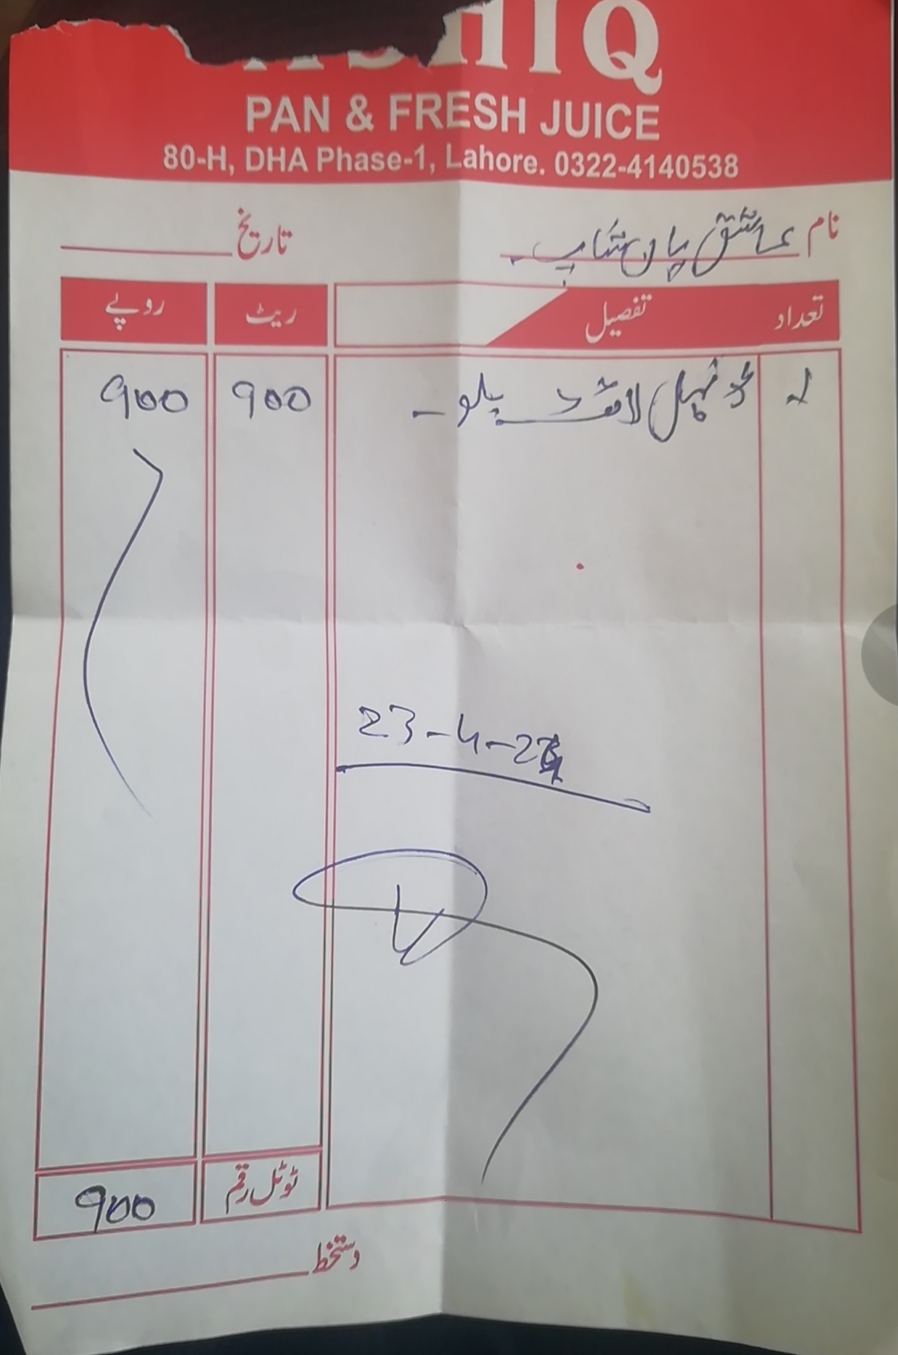 ASHIQ
PAN & FRESH JUICE
80-H, DHA Phase-1, Lahore. 0322-4140538
نام عاشق پان شاپ۔ تاریخ
تعداد تفصیل ریٹ روپے
ڈنہل لائٹ بلو - 900 900
23-4-24
ٹوٹل رقم 900
دستخط